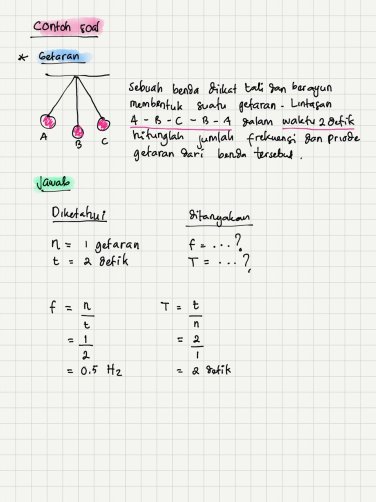 Contoh soal
* Getaran
A
B
C
Sebuah benda diikat tali dan berayun
membentuk suatu getaran. Lintasan
A - B - C - B - A dalam waktu 2 detik
hitunglah jumlah frekuensi dan priode
getaran dari benda tersebut.
Jawab
Diketahui
n = 1 getaran
t = 2 detik
ditanyakan
f = ...?
T = ...?
f = n
t
= 1
2
= 0.5 Hz
T = t
n
= 2
1
= 2 detik